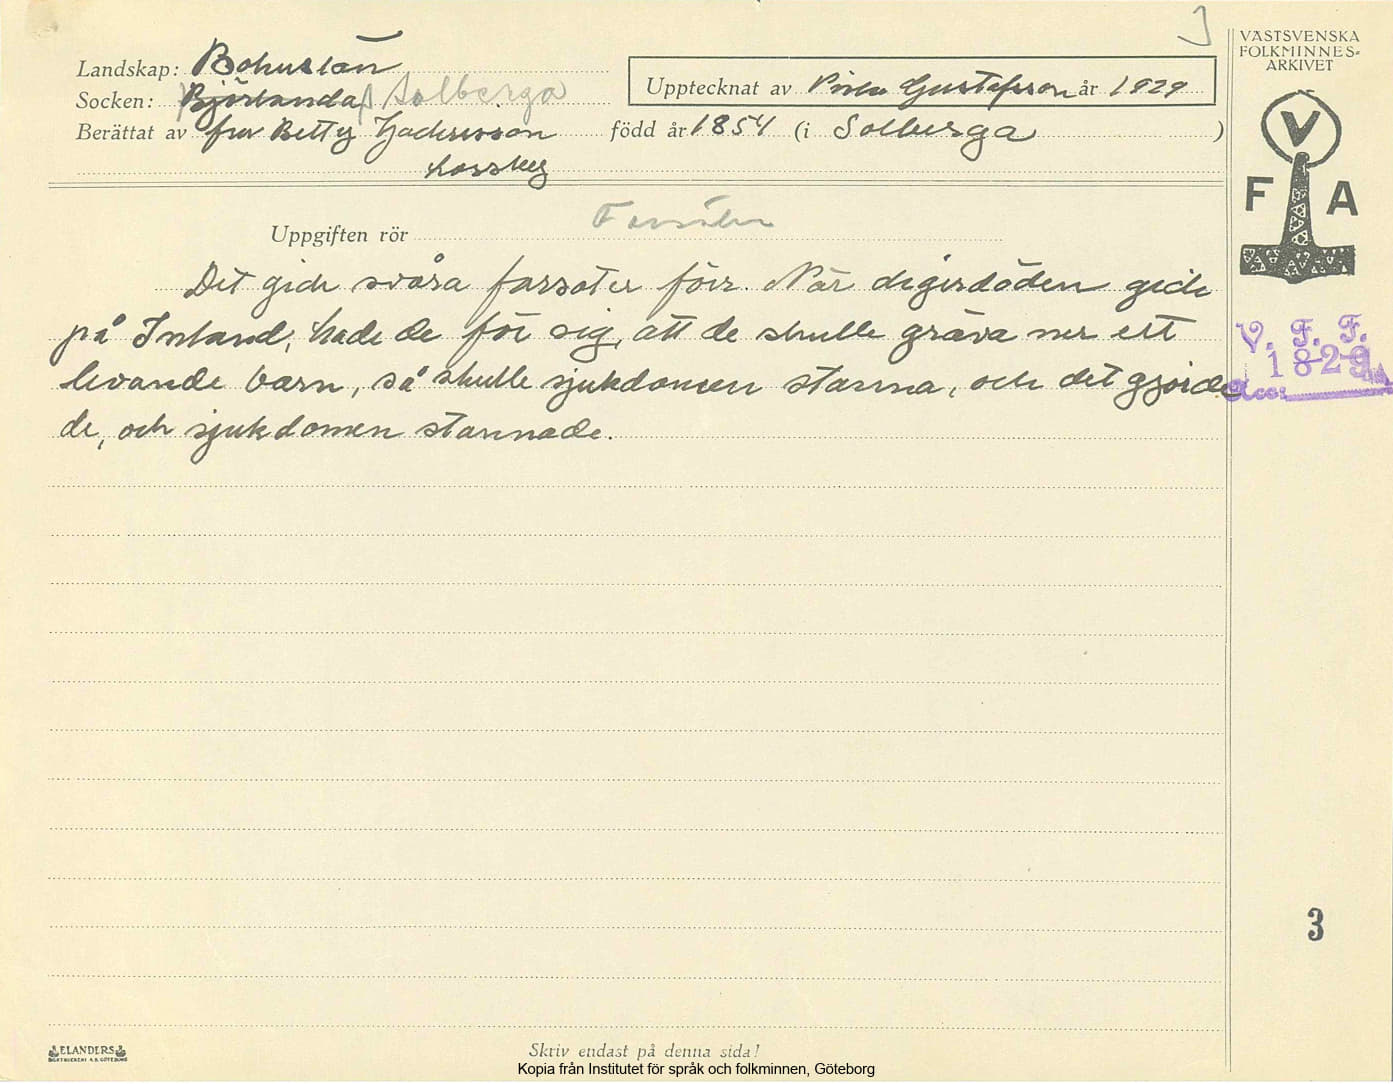 VÄSTSVENSKA
FOLKMINNES-
ARKIVET
V
F A
Landskap: Bohuslän
Socken: Björlanda Solberga
Upptecknat av Gustafsson år 1929
Berättat av fru Betty född år 1854 (i Solberga )
Uppgiften rör
Det gick svåra farsoter förr. När digerdöden gick
på Inland, hade de för sig, att de skulle gräva ner ett
levande barn, så skulle sjukdomen stanna, och det gjorde
de, och sjukdomen stannade.
V. F. F.
1829
Acc:
3
ELANDERS
Skriv endast på denna sida!
Kopia från Institutet för språk och folkminnen, Göteborg